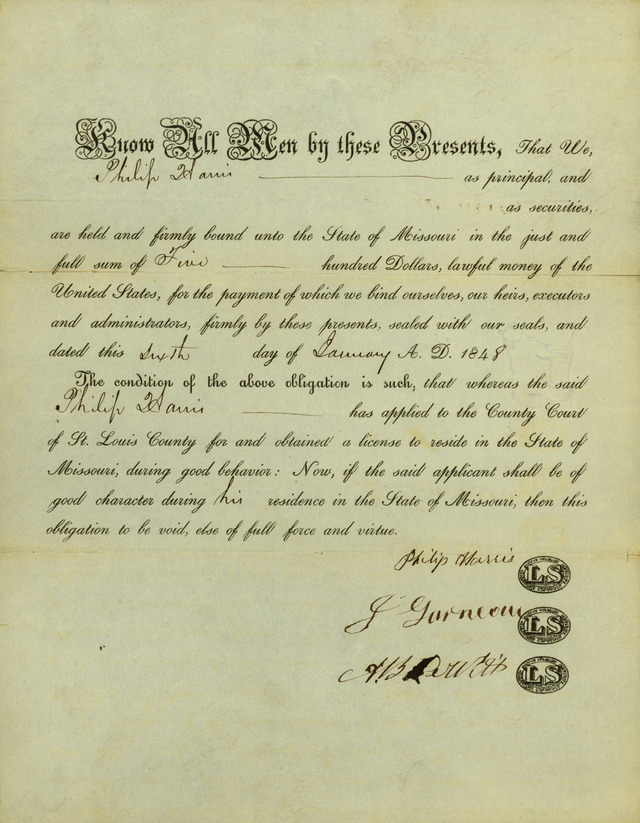 Know All Men by these Presents, That We,
Philip Harris as principal, and
as securities,
are held and firmly bound unto the State of Missouri in the just and
full sum of Five hundred Dollars, lawful money of the
United States, for the payment of which we bind ourselves, our heirs, executors
and administrators, firmly by these presents, sealed with our seals, and
dated this Sixth day of January A. D. 1848
The condition of the above obligation is such, that whereas the said
Philip Harris has applied to the County Court
of St. Louis County for and obtained a license to reside in the State of
Missouri, during good behavior: Now, if the said applicant shall be of
good character during his residence in the State of Missouri, then this
obligation to be void, else of full force and virtue.
Philip Harris LS
J Garneau LS
A. B. DeWitt LS